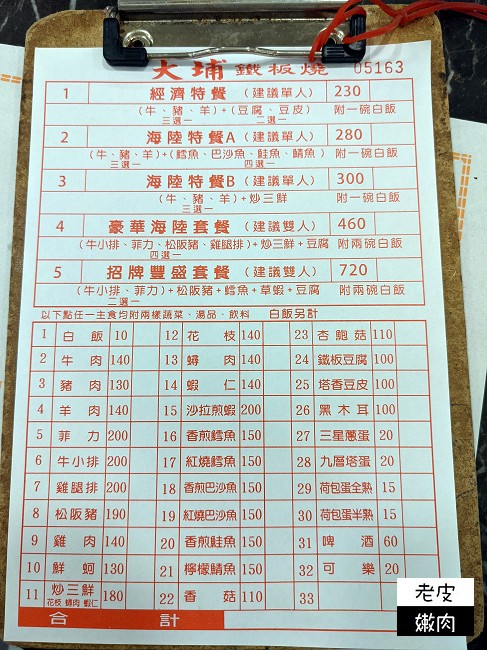 大埔 鐵板燒 05163
1 經濟特餐 (建議單人) 230
(牛、豬、羊)+(豆腐、豆皮) 附一碗白飯
三選一 二選一
2 海陸特餐A (建議單人) 280
(牛、豬、羊)+(鱈魚、巴沙魚、鮭魚、鯖魚) 附一碗白飯
三選一 四選一
3 海陸特餐B (建議單人) 300
(牛、豬、羊)+炒三鮮 附一碗白飯
三選一
4 豪華海陸套餐 (建議雙人) 460
(牛小排、菲力、松阪豬、雞腿排)+炒三鮮+豆腐 附兩碗白飯
四選一
5 招牌豐盛套餐 (建議雙人) 720
(牛小排、菲力)+松阪豬+鱈魚+草蝦+豆腐 附兩碗白飯
二選一
以下點任一主食均附兩樣蔬菜、湯品、飲料 白飯另計
1 白飯 10 12 花枝 140 23 杏鮑菇 110
2 牛肉 140 13 蟳肉 140 24 鐵板豆腐 100
3 豬肉 130 14 蝦仁 140 25 塔香豆皮 100
4 羊肉 140 15 沙拉煎蝦 200 26 黑木耳 100
5 菲力 200 16 香煎鱈魚 150 27 三星蔥蛋 20
6 牛小排 200 17 紅燒鱈魚 150 28 九層塔蛋 20
7 雞腿排 200 18 香煎巴沙魚 150 29 荷包蛋全熟 15
8 松阪豬 190 19 紅燒巴沙魚 150 30 荷包蛋半熟 15
9 雞肉 140 20 香煎鮭魚 150 31 啤酒 60
10 鮮蚵 130 21 檸檬鯖魚 150 32 可樂 20
11 炒三鮮 180 22 香菇 110 33
花枝 蟳肉 蝦仁
合計
老皮
嫩肉